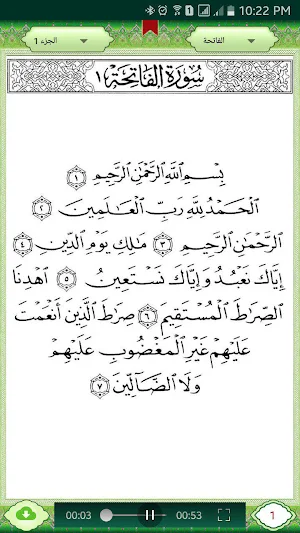 10:22 PM
الجزء 1 الفاتحة
سُورَةُ الفَاتِحَةِ ١
بِسْمِ اللَّهِ الرَّحْمَٰنِ الرَّحِيمِ ١
الْحَمْدُ لِلَّهِ رَبِّ الْعَالَمِينَ ٢
الرَّحْمَٰنِ الرَّحِيمِ ٣ مَالِكِ يَوْمِ الدِّينِ ٤
إِيَّاكَ نَعْبُدُ وَإِيَّاكَ نَسْتَعِينُ ٥ اهْدِنَا
الصِّرَاطَ الْمُسْتَقِيمَ ٦ صِرَاطَ الَّذِينَ أَنْعَمْتَ
عَلَيْهِمْ غَيْرِ الْمَغْضُوبِ عَلَيْهِمْ
وَلَا الضَّالِّينَ ٧
00:03 00:53 1